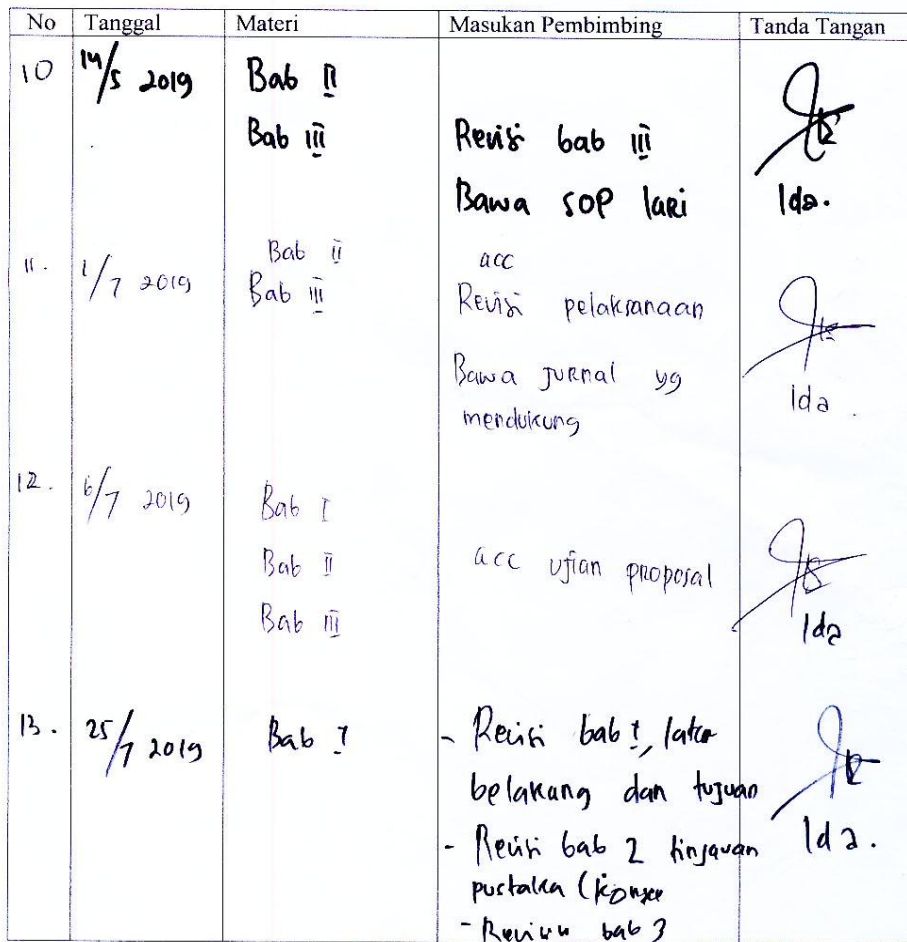 No Tanggal Materi Masukan Pembimbing Tanda Tangan
10 14/5 2019 Bab II
Bab III Revisi bab III
Bawa SOP lari Ida.
11. 1/7 2019 Bab II acc
Bab III Revisi pelaksanaan
Bawa jurnal yg
mendukung Ida.
12. 6/7 2019 Bab I
Bab II acc ujian proposal
Bab III Ida
13. 25/7 2019 Bab I - Revisi bab I, latar
belakang dan tujuan
- Revisi bab 2 tinjauan Ida.
pustaka (
- bab 3